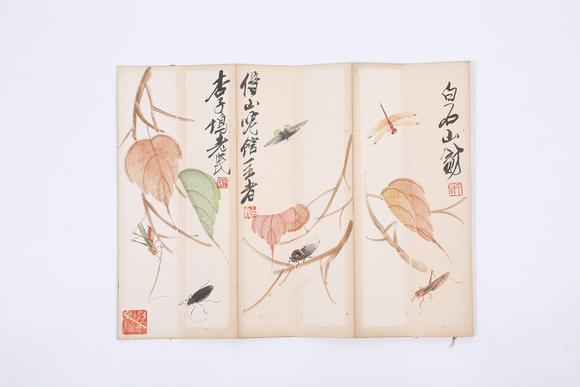 白石山翁
借山吟馆主者
杏子坞老民